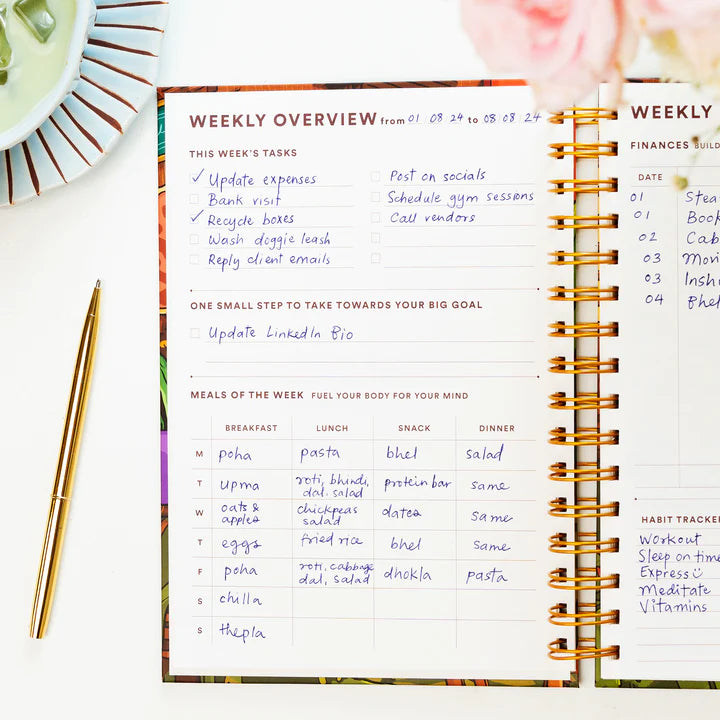 WEEKLY OVERVIEW from 01 08 24 to 08 08 24
THIS WEEK'S TASKS
Update expenses
Bank visit
Recycle boxes
Wash doggie leash
Reply client emails
Post on socials
Schedule gym sessions
Call vendors
ONE SMALL STEP TO TAKE TOWARDS YOUR BIG GOAL
Update LinkedIn Bio
MEALS OF THE WEEK FUEL YOUR BODY FOR YOUR MIND
BREAKFAST LUNCH SNACK DINNER
M poha pasta bhel salad
T upma roti, bhindi, dal, salad protein bar same
W oats & apples chickpeas salad dates same
T eggs fried rice bhel same
F poha roti, cabbage dal, salad dhokla pasta
S chilla
S thepla
WEEKLY
FINANCES
DATE
01
01 Book
02 Cab
03
03
04
HABIT TRACKE
Workout
Sleep on time
Express
Meditate
Vitamins